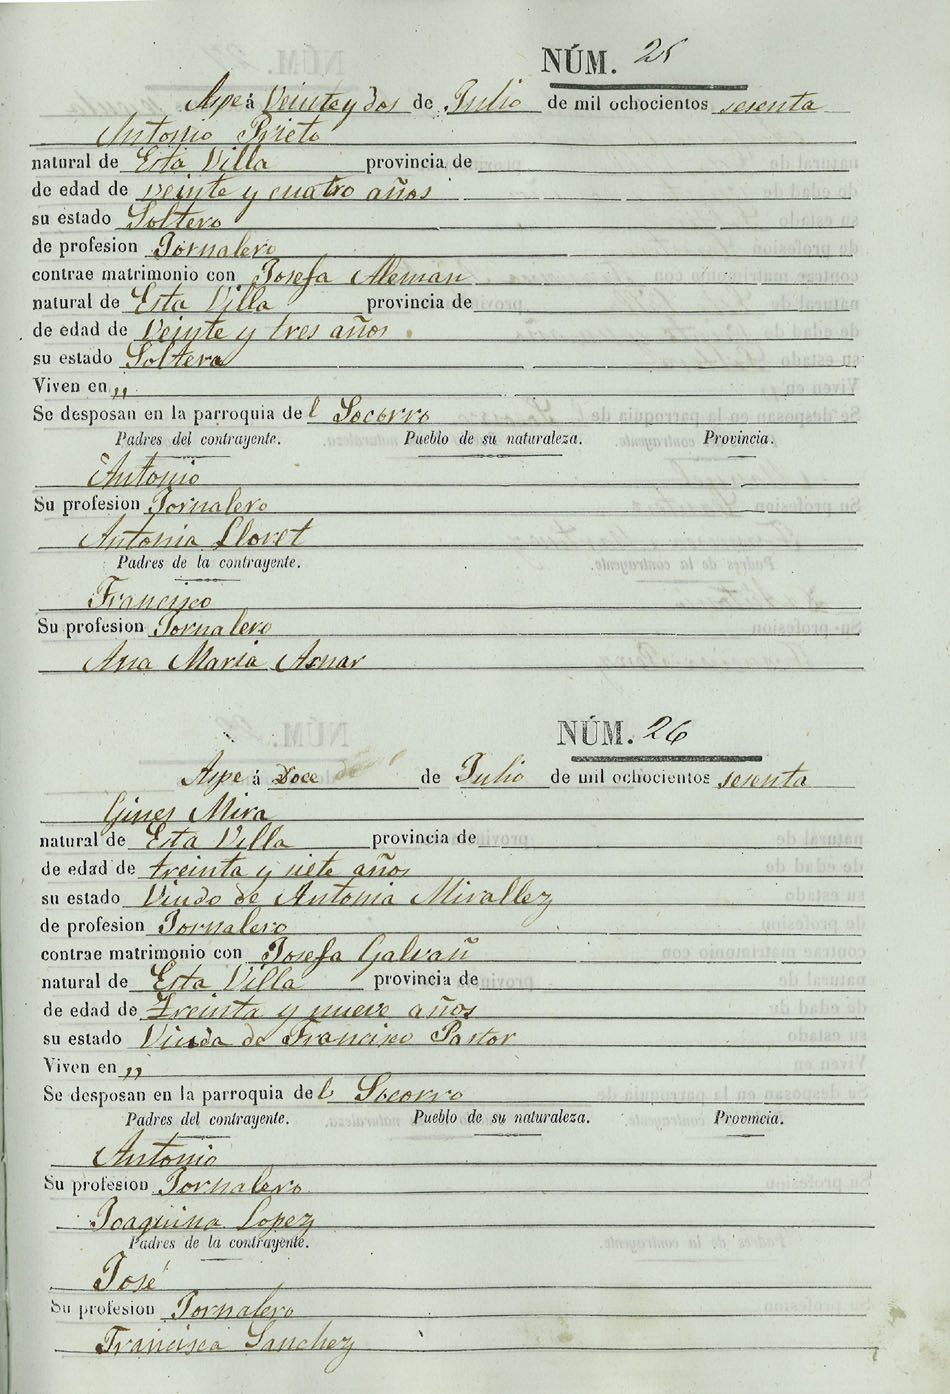 NÚM. 25
Aspe á Veinte y dos de Julio de mil ochocientos sesenta
Antonio Prieto
natural de Esta Villa provincia de
de edad de veinte y cuatro años
su estado Soltero
de profesion Jornalero
contrae matrimonio con Josefa Aleman
natural de Esta Villa provincia de
de edad de Veinte y tres años
su estado Soltera
Viven en ,,
Se desposan en la parroquia del Socorro
Padres del contrayente. Pueblo de su naturaleza. Provincia.
Antonio
Su profesion Jornalero
Antonia Lloret
Padres de la contrayente.
Francisco
Su profesion Jornalero
Ana Maria Asnar
NÚM. 26
Aspe á Doce de Julio de mil ochocientos sesenta
Gines Mira
natural de Esta Villa provincia de
de edad de treinta y siete años
su estado Viudo de Antonia Mirallez
de profesion Jornalero
contrae matrimonio con Josefa Galvañ
natural de Esta Villa provincia de
de edad de Treinta y nueve años
su estado Viuda de Francisco Pastor
Viven en ,,
Se desposan en la parroquia del Socorro
Padres del contrayente. Pueblo de su naturaleza. Provincia.
Antonio
Su profesion Jornalero
Joaquina Lopez
Padres de la contrayente.
José
Su profesion Jornalero
Francisca Sanchez